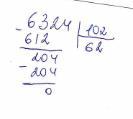 - 6324 | 102
612 | 62
204
- 204
0